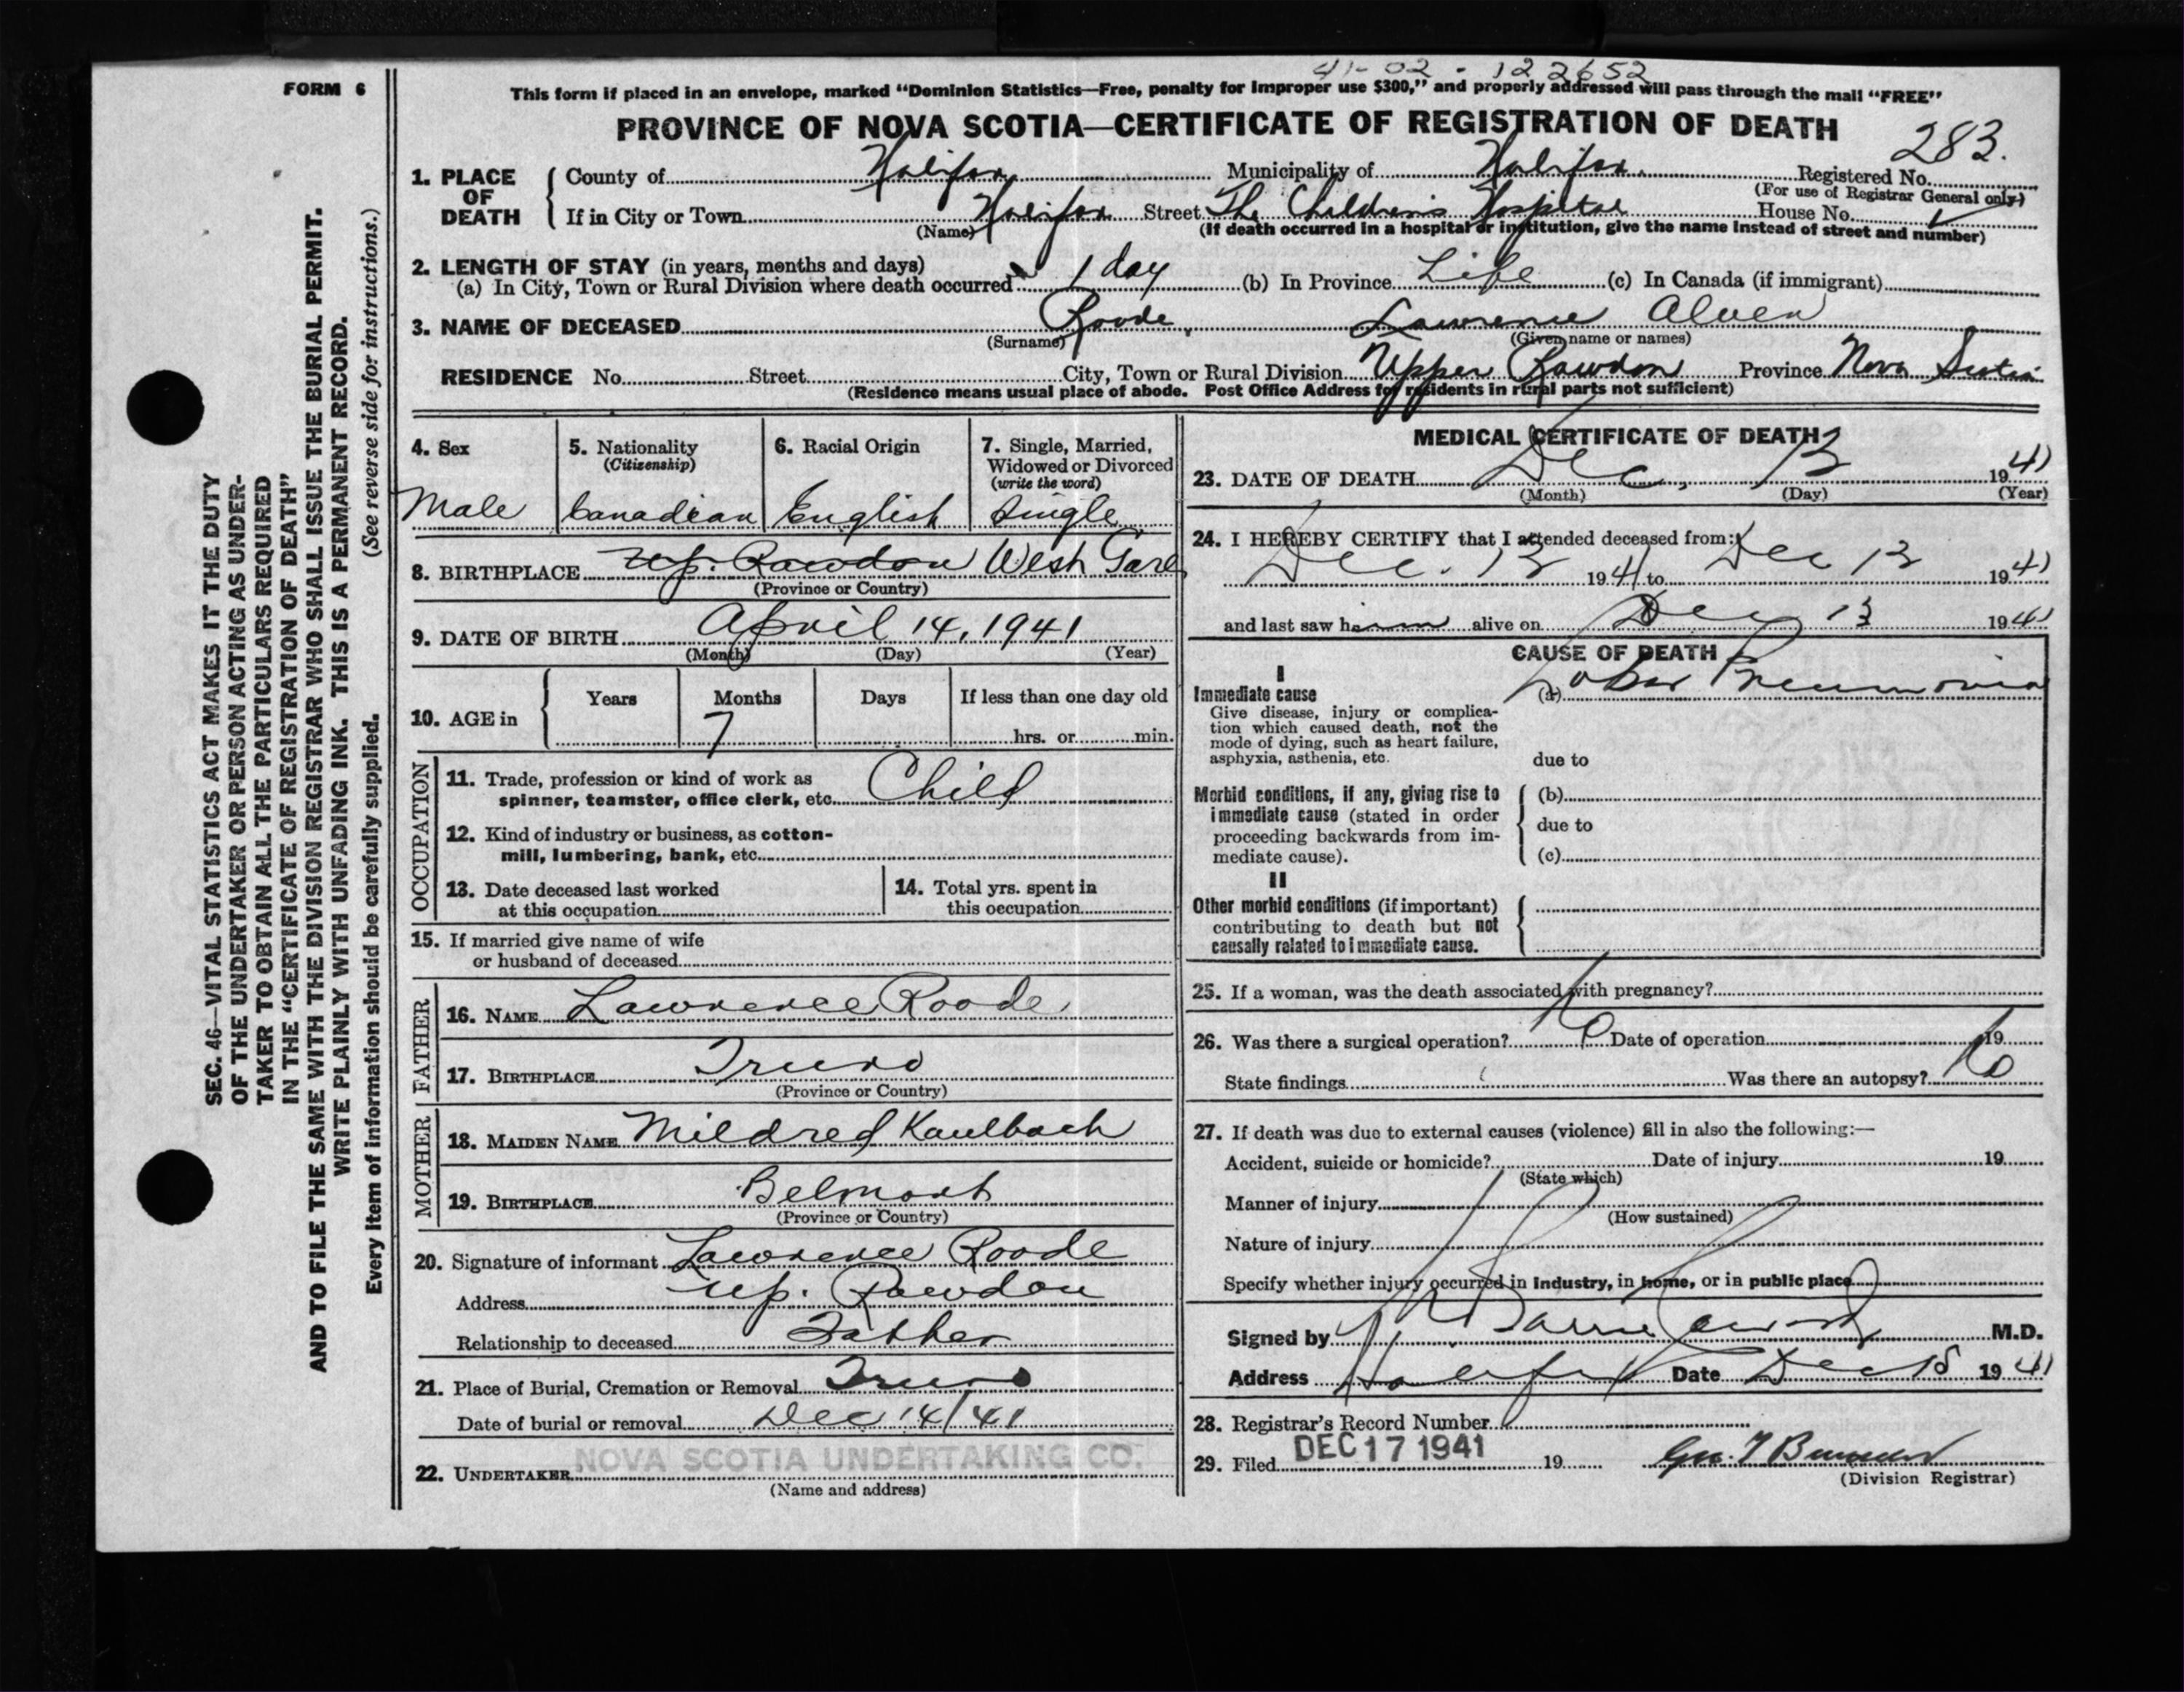 41-02-122652
FORM 6
This form if placed in an envelope, marked "Dominion Statistics—Free, penalty for improper use $300," and properly addressed will pass through the mail "FREE"
PROVINCE OF NOVA SCOTIA—CERTIFICATE OF REGISTRATION OF DEATH
283.
1. PLACE OF DEATH
County of Halifax Municipality of Halifax. Registered No.
(For use of Registrar General only)
If in City or Town Halifax Street The Children's Hospital House No.
(Name) (If death occurred in a hospital or institution, give the name instead of street and number)
2. LENGTH OF STAY (in years, months and days)
(a) In City, Town or Rural Division where death occurred 1 day (b) In Province Life (c) In Canada (if immigrant)
3. NAME OF DECEASED Roode, Lawrence Alven
(Surname) (Given name or names)
RESIDENCE No. Street City, Town or Rural Division Upper Rawdon Province Nova Scotia
(Residence means usual place of abode. Post Office Address for residents in rural parts not sufficient)
4. Sex
Male
5. Nationality
(Citizenship)
Canadian
6. Racial Origin
English
7. Single, Married,
Widowed or Divorced
(write the word)
Single
8. BIRTHPLACE Up. Rawdon West Gore
(Province or Country)
9. DATE OF BIRTH April 14, 1941
(Month) (Day) (Year)
10. AGE in Years Months Days If less than one day old
7 hrs. or min.
OCCUPATION
11. Trade, profession or kind of work as
spinner, teamster, office clerk, etc. Child
12. Kind of industry or business, as cotton-
mill, lumbering, bank, etc.
13. Date deceased last worked
at this occupation
14. Total yrs. spent in
this occupation
15. If married give name of wife
or husband of deceased
FATHER
16. NAME Lawrence Roode
17. BIRTHPLACE Truro
(Province or Country)
MOTHER
18. MAIDEN NAME Mildred Kaulback
19. BIRTHPLACE Belmont
(Province or Country)
20. Signature of informant Lawrence Roode
Address Up. Rawdon
Relationship to deceased Father
21. Place of Burial, Cremation or Removal Truro
Date of burial or removal Dec 14/41
22. UNDERTAKER NOVA SCOTIA UNDERTAKING CO.
(Name and address)
MEDICAL CERTIFICATE OF DEATH
23. DATE OF DEATH Dec. 13 1941
(Month) (Day) (Year)
24. I HEREBY CERTIFY that I attended deceased from:
Dec. 13 1941 to Dec 13 1941
and last saw him alive on Dec 13 1941
CAUSE OF DEATH
I
Immediate cause (a) Lobar Pneumonia
Give disease, injury or complica-
tion which caused death, not the
mode of dying, such as heart failure,
asphyxia, asthenia, etc.
due to
Morbid conditions, if any, giving rise to
immediate cause (stated in order
proceeding backwards from im-
mediate cause).
(b)
due to
(c)
II
Other morbid conditions (if important)
contributing to death but not
causally related to immediate cause.
25. If a woman, was the death associated with pregnancy?
26. Was there a surgical operation? No Date of operation 19
State findings Was there an autopsy? No
27. If death was due to external causes (violence) fill in also the following:—
Accident, suicide or homicide? Date of injury 19
(State which)
Manner of injury
(How sustained)
Nature of injury
Specify whether injury occurred in industry, in home, or in public place
Signed by M.D.
Address Halifax Date Dec 15 1941
28. Registrar's Record Number
29. Filed DEC 17 1941 19
(Division Registrar)
SEC. 46—VITAL STATISTICS ACT MAKES IT THE DUTY
OF THE UNDERTAKER OR PERSON ACTING AS UNDER-
TAKER TO OBTAIN ALL THE PARTICULARS REQUIRED
IN THE "CERTIFICATE OF REGISTRATION OF DEATH"
AND TO FILE THE SAME WITH THE DIVISION REGISTRAR WHO SHALL ISSUE THE BURIAL PERMIT.
WRITE PLAINLY WITH UNFADING INK. THIS IS A PERMANENT RECORD.
Every item of information should be carefully supplied. (See reverse side for instructions.)